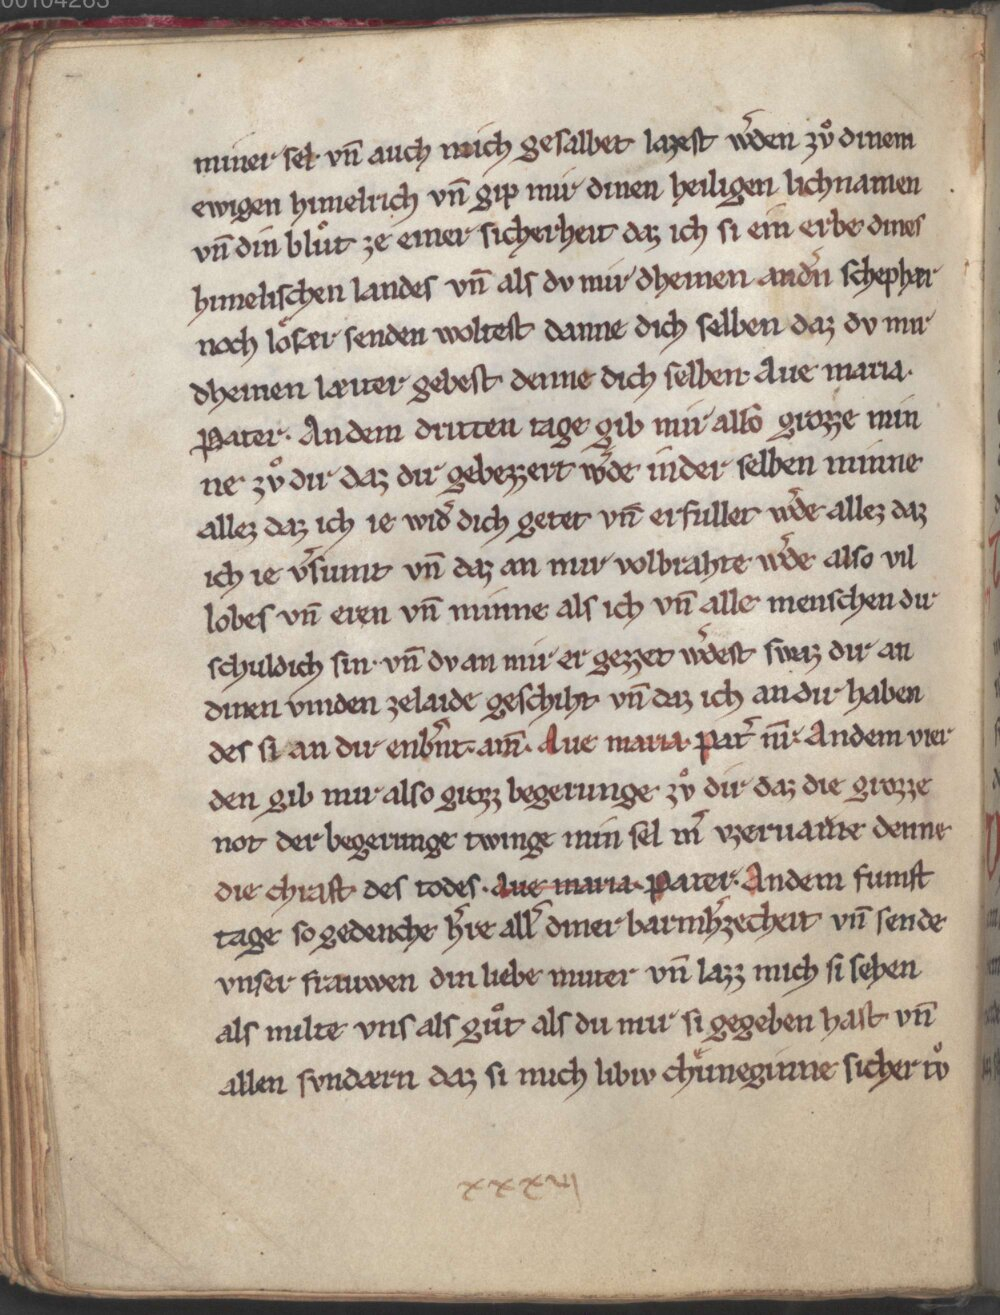 miner sel vn̄ auch mich gesalbet lazest w̉den zvͦ dinem
ewigen himelrich vn̄ gip mir dinen heiligen lichnamen
vn̄ din blvͦt ze einer sicherheit daz ich si ein erbe dines
himelischen landes vn̄ als dv mir dheinen andn̉ schephær
noch losær senden woltest danne dich selben daz dv mir
dheinen læiter gebest denne dich selben Aue maria.
Pater. An dem dritten tage gib mir also grozze min
ne zvͦ dir daz dir gebezzert w̉de in der selben minne
allez daz ich ie wid̉ dich getet vn̄ erfullet w̉de allez daz
ich ie v̉sumt vn̄ daz an mir volbrahte w̉de also vil
lobes vn̄ eren vn̄ minne als ich vn̄ alle menschen dir
schuldich sin. vn̄ dv an mir er gezzet w̉dest swaz dir an
dinen vinden zelaide geschiht vn̄ daz ich an dir haben
des si an dir enbn̉t. am̄. Aue maria. pat̉ nr̄. An dem vier
den gib mir also grozz begerunge zvͦ dir daz die grozze
not der begerunge twinge min sel m̉ denne
die chraft des todes. Aue maria. Pater. An dem fumft
tage so gedenche h̉re all̉ diner barmh̉zecheit vn̄ sende
vnser frauwen din liebe muter vn̄ lazz mich si sehen
als milte vns als gvͦt als du mir si gegeben hast vn̄
allen svndærn daz si mich libiv chuneginne sicher tvͦ
xxxiii